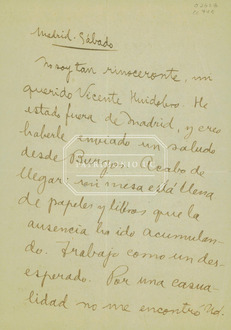 Madrid-Sábado
No soy tan rinoceronte, mi
querido Vicente Huidobro. He
estado fuera de Madrid, y creo
haberle enviado un saludo
desde Burgos. Acabo de
llegar: mi mesa está llena
de papeles y libros que la
ausencia ha ido acumulan-
do. Trabajo como un des-
esperado. Por una casua-
lidad no me encontró